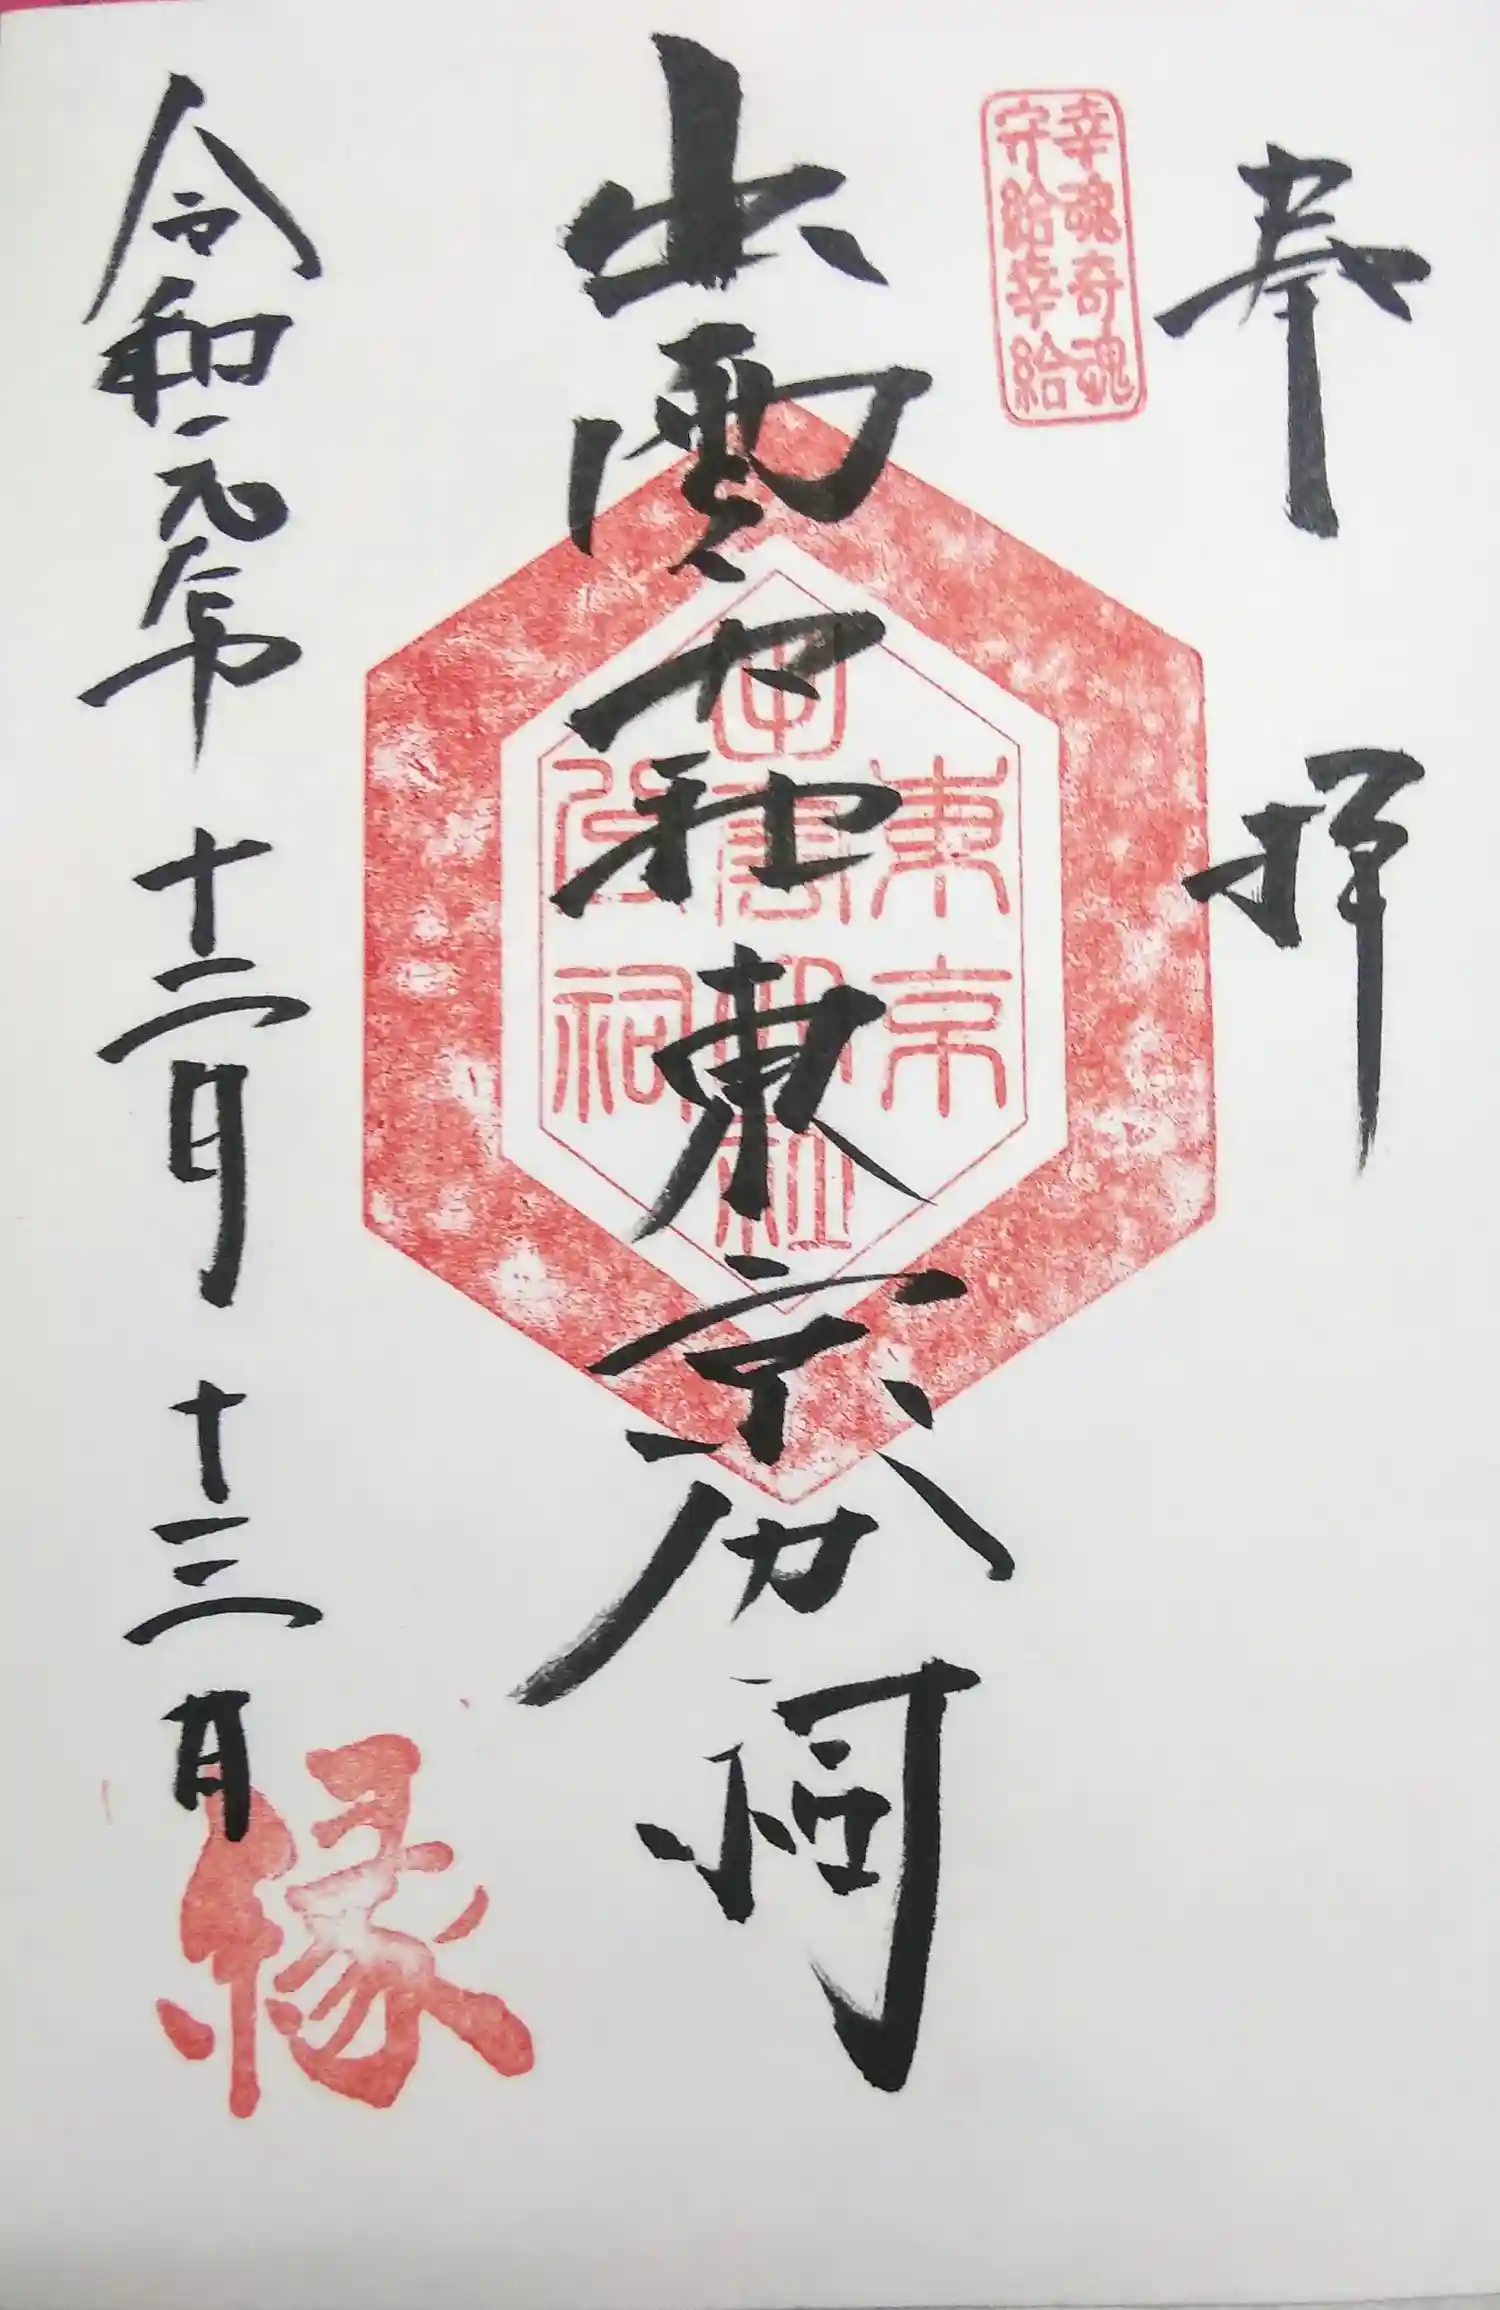 奉拝
幸魂奇魂
守給幸給
出雲大社東京分祠
東京
出雲大社
分祠
令和元年十二月十三日
縁